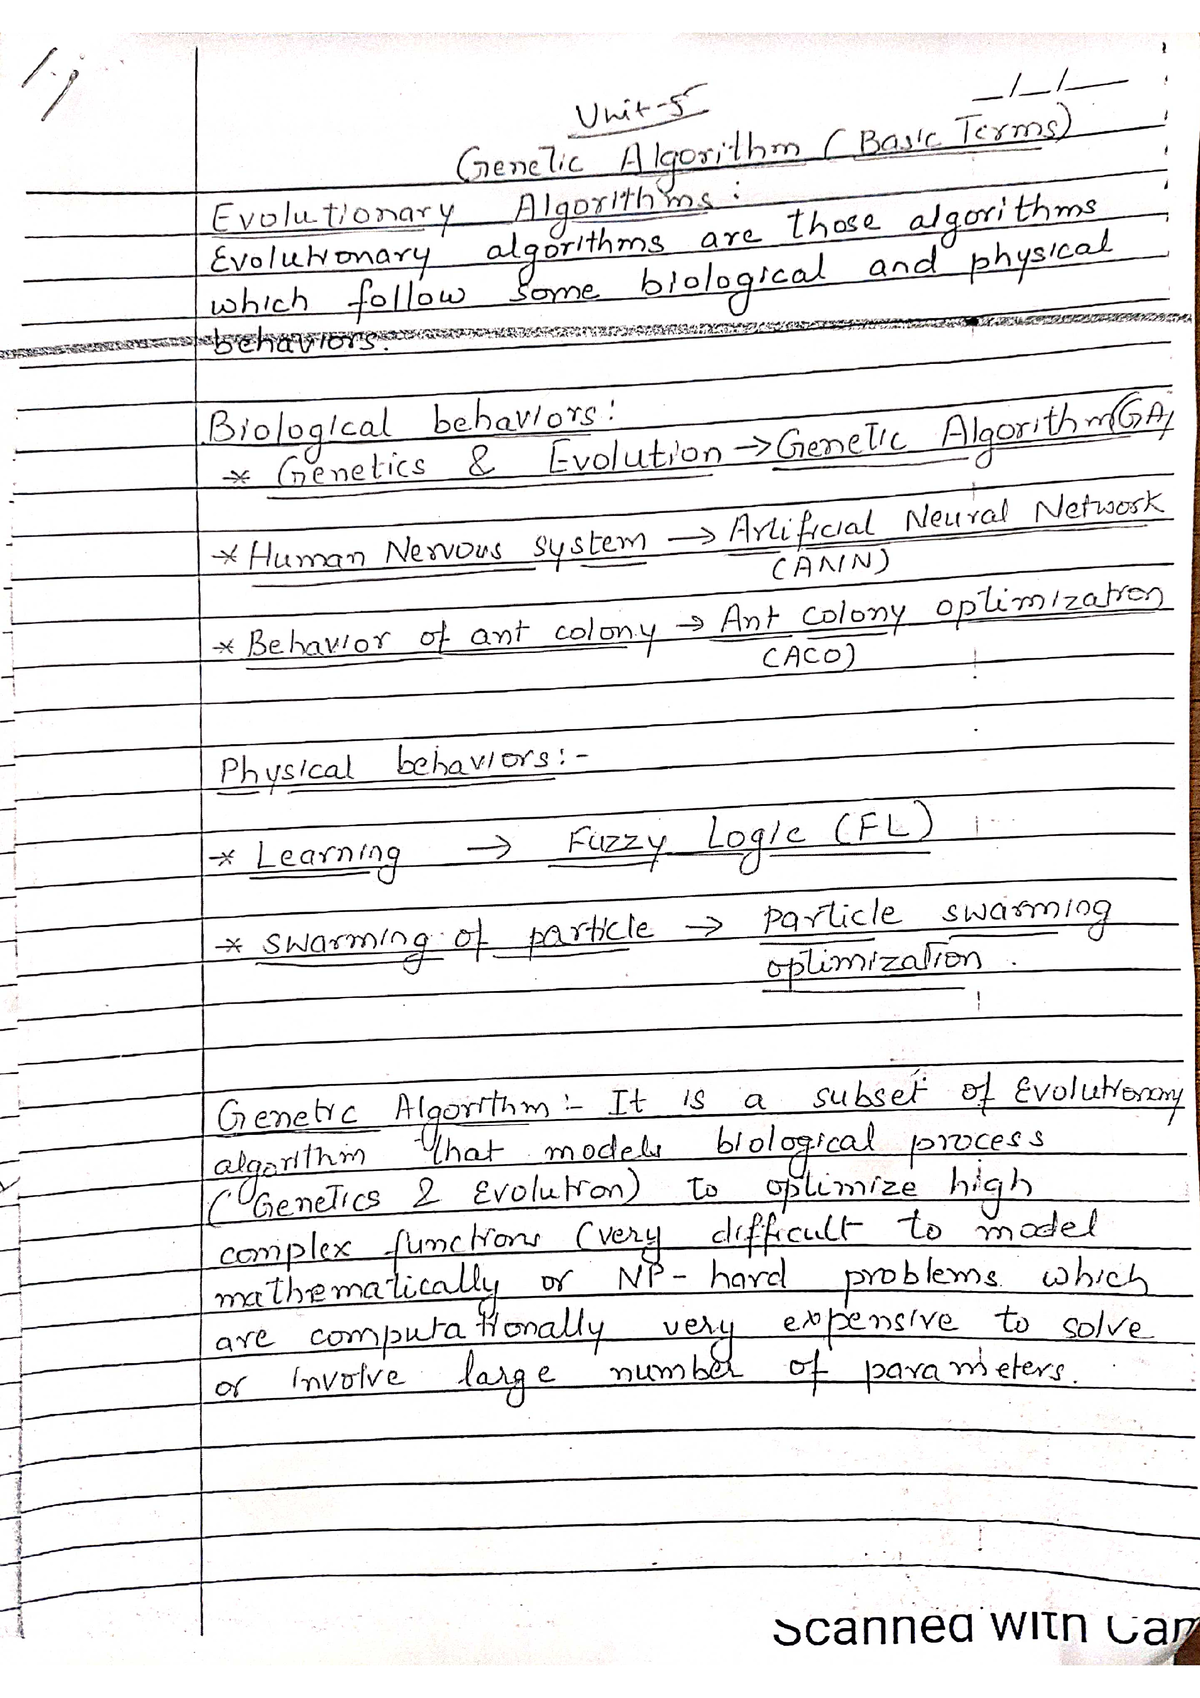 Unit-5
_/_/__
Genetic Algorithm (Basic Terms)
Evolutionary Algorithms:
Evolutionary algorithms are those algorithms
which follow some biological and physical
behaviors.
Biological behaviors:
* Genetics & Evolution → Genetic Algorithm (GA)
* Human Nervous system → Artificial Neural Network
(ANN)
* Behavior of ant colony → Ant colony optimization
(ACO)
Physical behaviors:-
* Learning → Fuzzy Logic (FL)
* swarming of particle → particle swarming
optimization.
Genetic Algorithm:- It is a subset of Evolutionary
algorithm that models biological process
(Genetics & Evolution) to optimize high
complex functions (very difficult to model
mathematically or NP-hard problems which
are computationally very expensive to solve
or involve large number of parameters.
Scanned with Cam